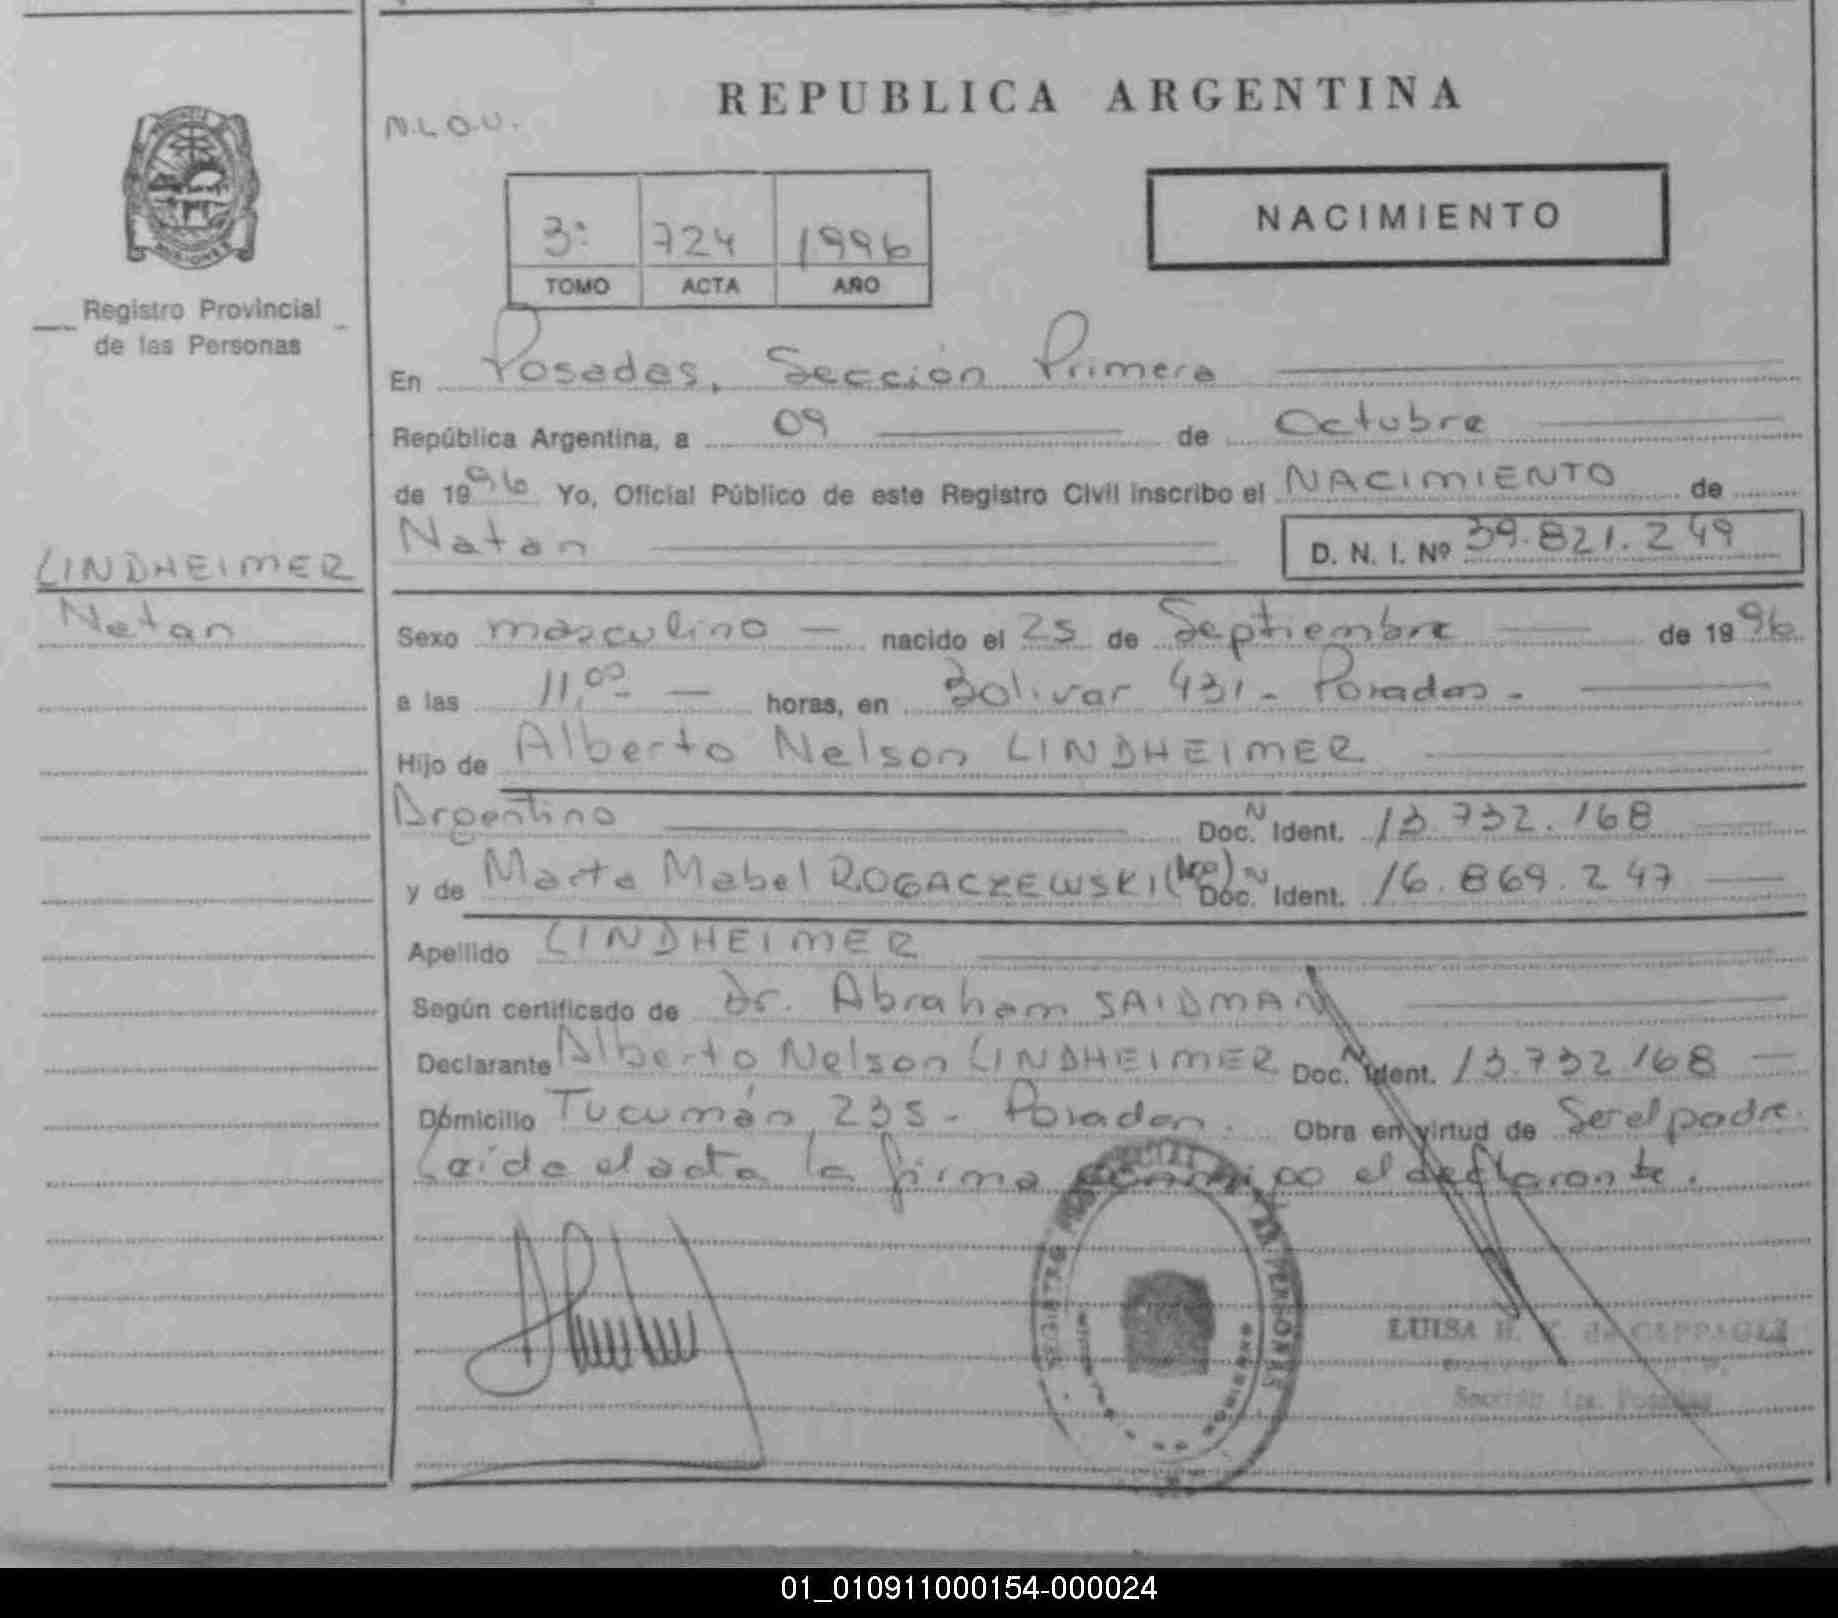 REPUBLICA ARGENTINA
N.L.O.U.
NACIMIENTO
3: 724 1996
TOMO ACTA AÑO
Registro Provincial
de las Personas
En Posadas, Sección Primera
República Argentina, a 09 de Octubre
de 1996 Yo, Oficial Público de este Registro Civil inscribo el NACIMIENTO de
Natan D. N. I. Nº 39.821.249
LINDHEIMER
Natan
Sexo masculino — nacido el 25 de Septiembre — de 1996
a las 11,00 — horas, en Bolivar 431 - Posadas -
Hijo de Alberto Nelson LINDHEIMER
Argentino Doc. N Ident. 13.732.168
y de Marta Mabel ROGACZEWSKI Doc. N Ident. 16.869.247
Apellido LINDHEIMER
Según certificado de Dr. Abraham SAIDMAN
Declarante Alberto Nelson LINDHEIMER Doc. N Ident. 13.732.168 —
Domicilio Tucumán 235 - Posadas. Obra en virtud de Ser el padre.
Leída el acta la firma conmigo el declarante.
REGISTRO PERSONAS
MISIONES
LUISA H. de
Sección 1ra. Posadas
01_010911000154-000024